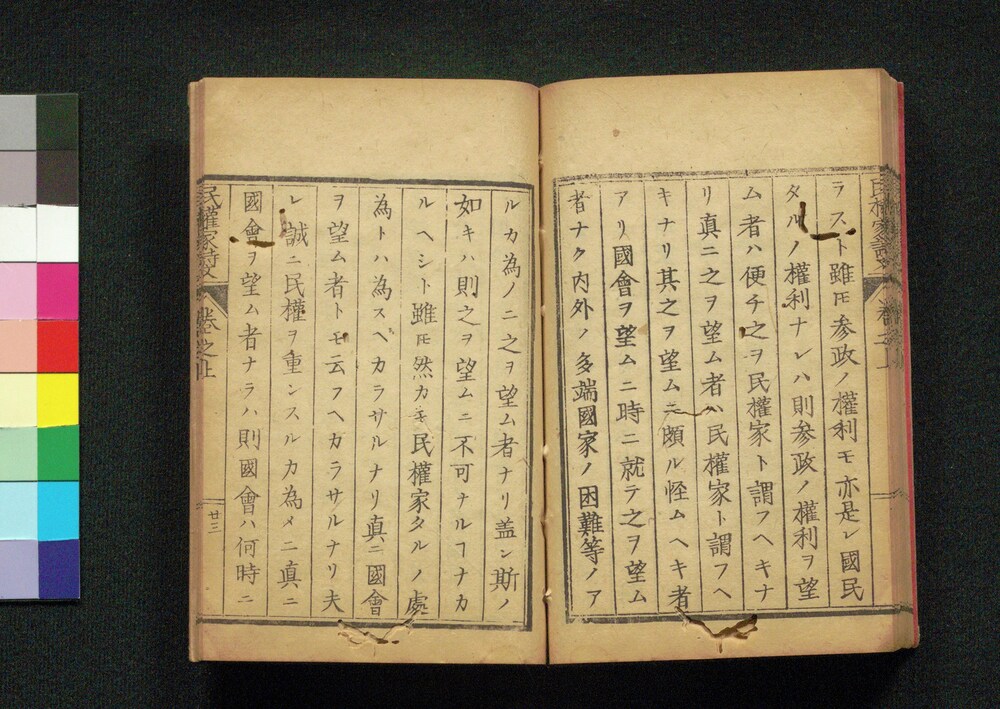 ラスト雖𪜈参政ノ權利モ亦是レ國民
タルノ權利ナレハ則参政ノ權利ヲ望
ム者ハ便チ之ヲ民權家ト謂フヘキナ
リ真ニ之ヲ望ム者ハ民權家ト謂フヘ
キナリ其之ヲ望ムニ頗ル怪ムヘキ者
アリ國會ヲ望ムニ時ニ就テ之ヲ望ム
者ナク内外ノ多端國家ノ困難等ノア
ルカ為ノニ之ヲ望ム者ナリ盖シ斯ノ
如キハ則之ヲ望ムニ不可ナルヿナカ
ルヘシト雖𪜈然カモ民權家タルノ處
為トハ為スヘカラサルナリ真ニ國會
ヲ望ム者トモ云フヘカラサルナリ夫
レ誠ニ民權ヲ重ンスルカ為メニ真ニ
國會ヲ望ム者ナラハ則國會ハ何時ニ
民權家
卷之上
廿三